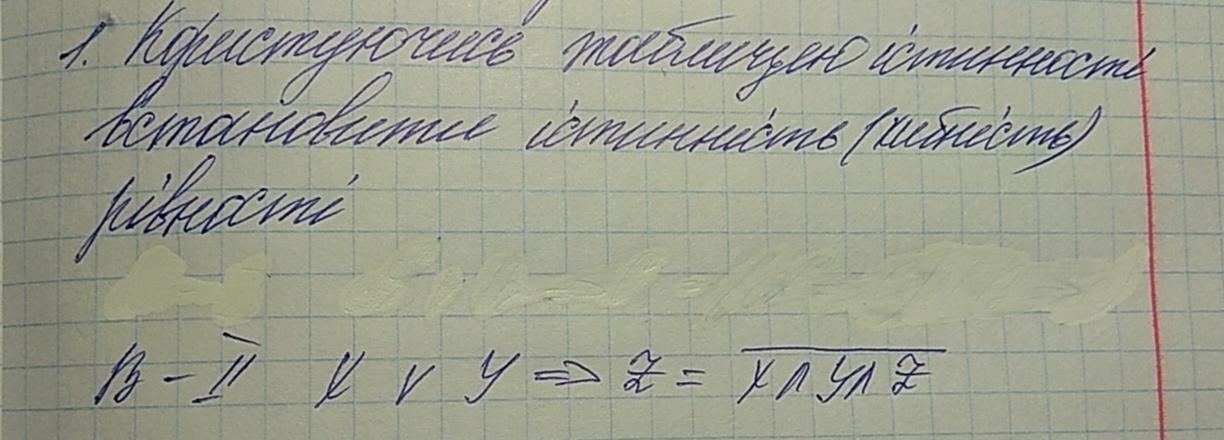 1. Користуючись таблицею істинності
встановити істинність (хибність)
рівності
В - II X v У ⇒ Z = \overline{X ∧ У ∧ Z}